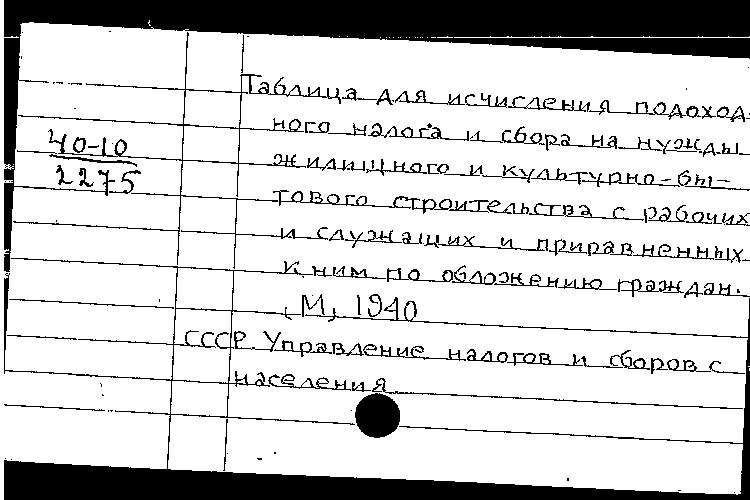 Таблица для исчисления подоход-
ного налога и сбора на нужды
40-10
2275
жилищного и культурно-бы-
тового строительства с рабочих
и служащих и приравненных
к ним по обложению граждан.
М, 1940
СССР. Управление налогов и сборов с
населения